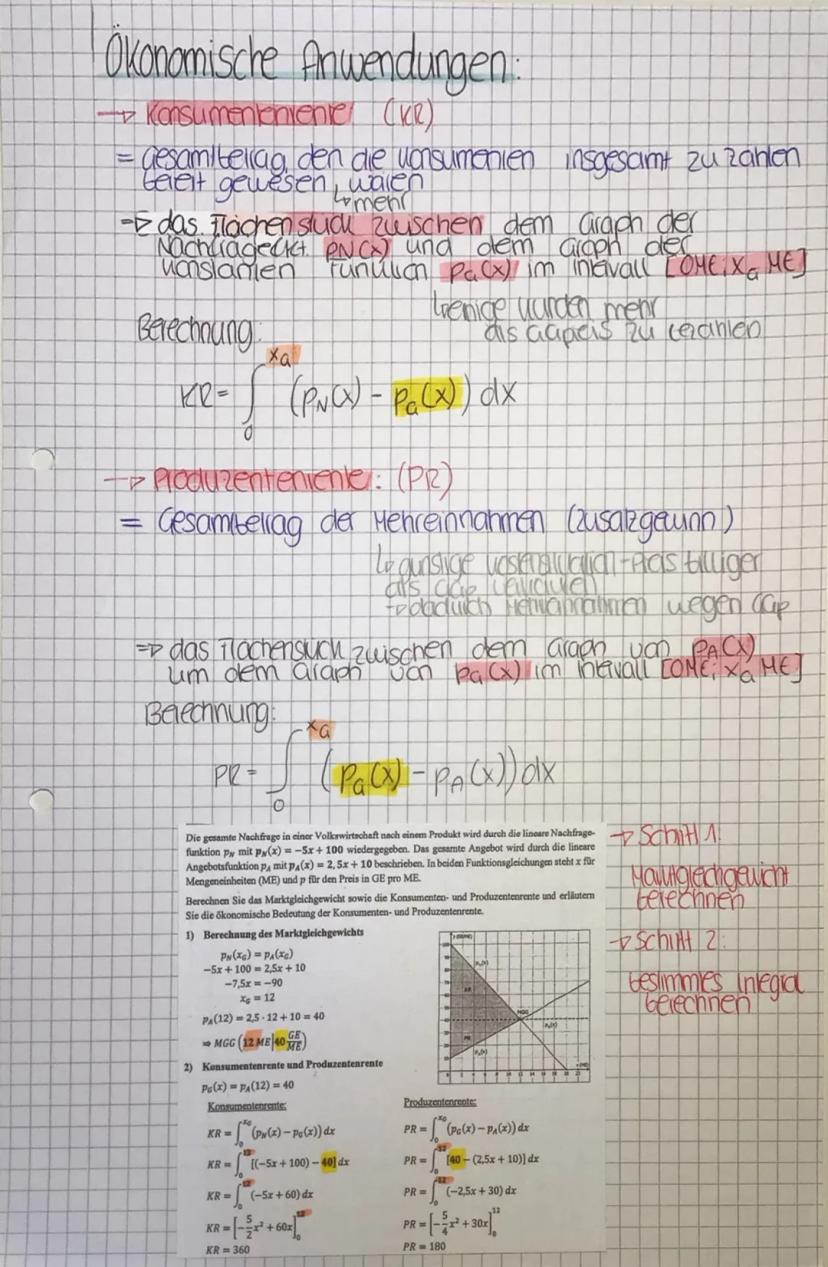 Ökonomische Anwendungen:
→ Konsumentenrente (KR)
= Gesamtbetrag, den die Konsumenten insgesamt zu zahlen
bereit gewesen wären
↳ mehr
⇒ das Flächenstück zwischen dem Graph der
Nachfragefkt. pN(x) und dem Graph der
konstanten Funktion pG(x) im Intervall [0ME; xG ME]
↳ einige würden mehr
als GGpreis zu bezahlen
Berechnung:
KR = ∫₀^xG (pN(x) - pG(x)) dx
→ Produzentenrente: (PR)
= Gesamtbetrag der Mehreinnahmen (Zusatzgewinn)
↳ günstige billiger
als GGP
→ dadurch Mehreinnahmen wegen GGP
⇒ das Flächenstück zwischen dem Graph von pA(x)
um dem Graph von pG(x) im Intervall [0ME; xG ME]
Berechnung:
PR = ∫₀^xG (pG(x) - pA(x)) dx
Die gesamte Nachfrage in einer Volkswirtschaft nach einem Produkt wird durch die lineare Nachfrage-
funktion pN mit pN(x) = −5x + 100 wiedergegeben. Das gesamte Angebot wird durch die lineare
Angebotsfunktion pA mit pA(x) = 2,5x + 10 beschrieben. In beiden Funktionsgleichungen steht x für
Mengeneinheiten (ME) und p für den Preis in GE pro ME.
Berechnen Sie das Marktgleichgewicht sowie die Konsumenten- und Produzentenrente und erläutern
Sie die ökonomische Bedeutung der Konsumenten- und Produzentenrente.
1) Berechnung des Marktgleichgewichts
pN(xG) = pA(xG)
−5x + 100 = 2,5x + 10
−7,5x = −90
xG = 12
pA(12) = 2,5 · 12 + 10 = 40
⇒ MGG (12 ME|40 GE/ME)
2) Konsumentenrente und Produzentenrente
pG(x) = pA(12) = 40
Konsumentenrente:
KR = ∫₀^xG (pN(x) − pG(x)) dx
KR = ∫₀^12 [(−5x + 100) − 40] dx
KR = ∫₀^12 (−5x + 60) dx
KR = [−5/2 x² + 60x]₀^12
KR = 360
Produzentenrente:
PR = ∫₀^xG (pG(x) − pA(x)) dx
PR = ∫₀^12 [40 − (2,5x + 10)] dx
PR = ∫₀^12 (−2,5x + 30) dx
PR = [−5/4 x² + 30x]₀^12
PR = 180
→ Schritt 1:
Marktgleichgewicht
berechnen
→ Schritt 2:
bestimmtes Integral
berechnen